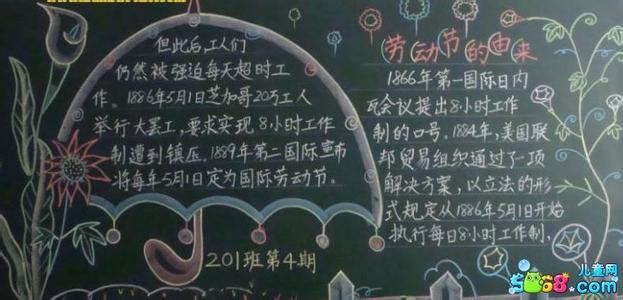 劳动节的由来
1866年第一国际日内
瓦会议提出8小时工作
制的口号。1884年,美国联
邦贸易组织通过了一项
解决方案,以立法的形
式规定从1886年5月1日开始
执行每日8小时工作制,
但此后,工人们
仍然被强迫每天超时工
作。1886年5月1日芝加哥20万工人
举行大罢工,要求实现8小时工作
制遭到镇压。1889年第二国际宣布
将每年5月1日定为国际劳动节。
201班第4期
5068.儿童网